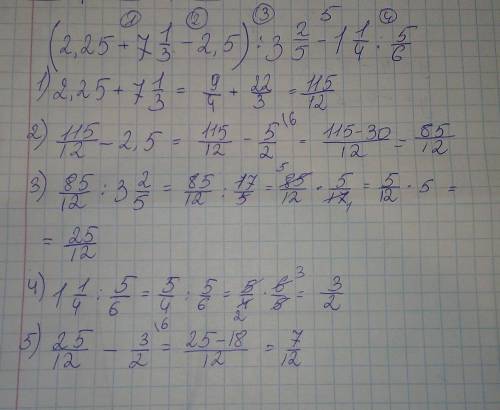 ① ② ③ 5 ④
(2,25 + 7 1/3 − 2,5) : 3 2/5 − 1 1/4 : 5/6
1) 2,25 + 7 1/3 = 9/4 + 22/3 = 115/12
2) 115/12 − 2,5 = 115/12 − 5/2 \6 = (115−30)/12 = 85/12
3) 85/12 : 3 2/5 = 85/12 : 17/5 = 5 85/12 · 5/17 1 = 5/12 · 5 =
= 25/12
4) 1 1/4 : 5/6 = 5/4 : 5/6 = 5/4 2 · 6/5 3 = 3/2
5) 25/12 − 3/2 \6 = (25−18)/12 = 7/12